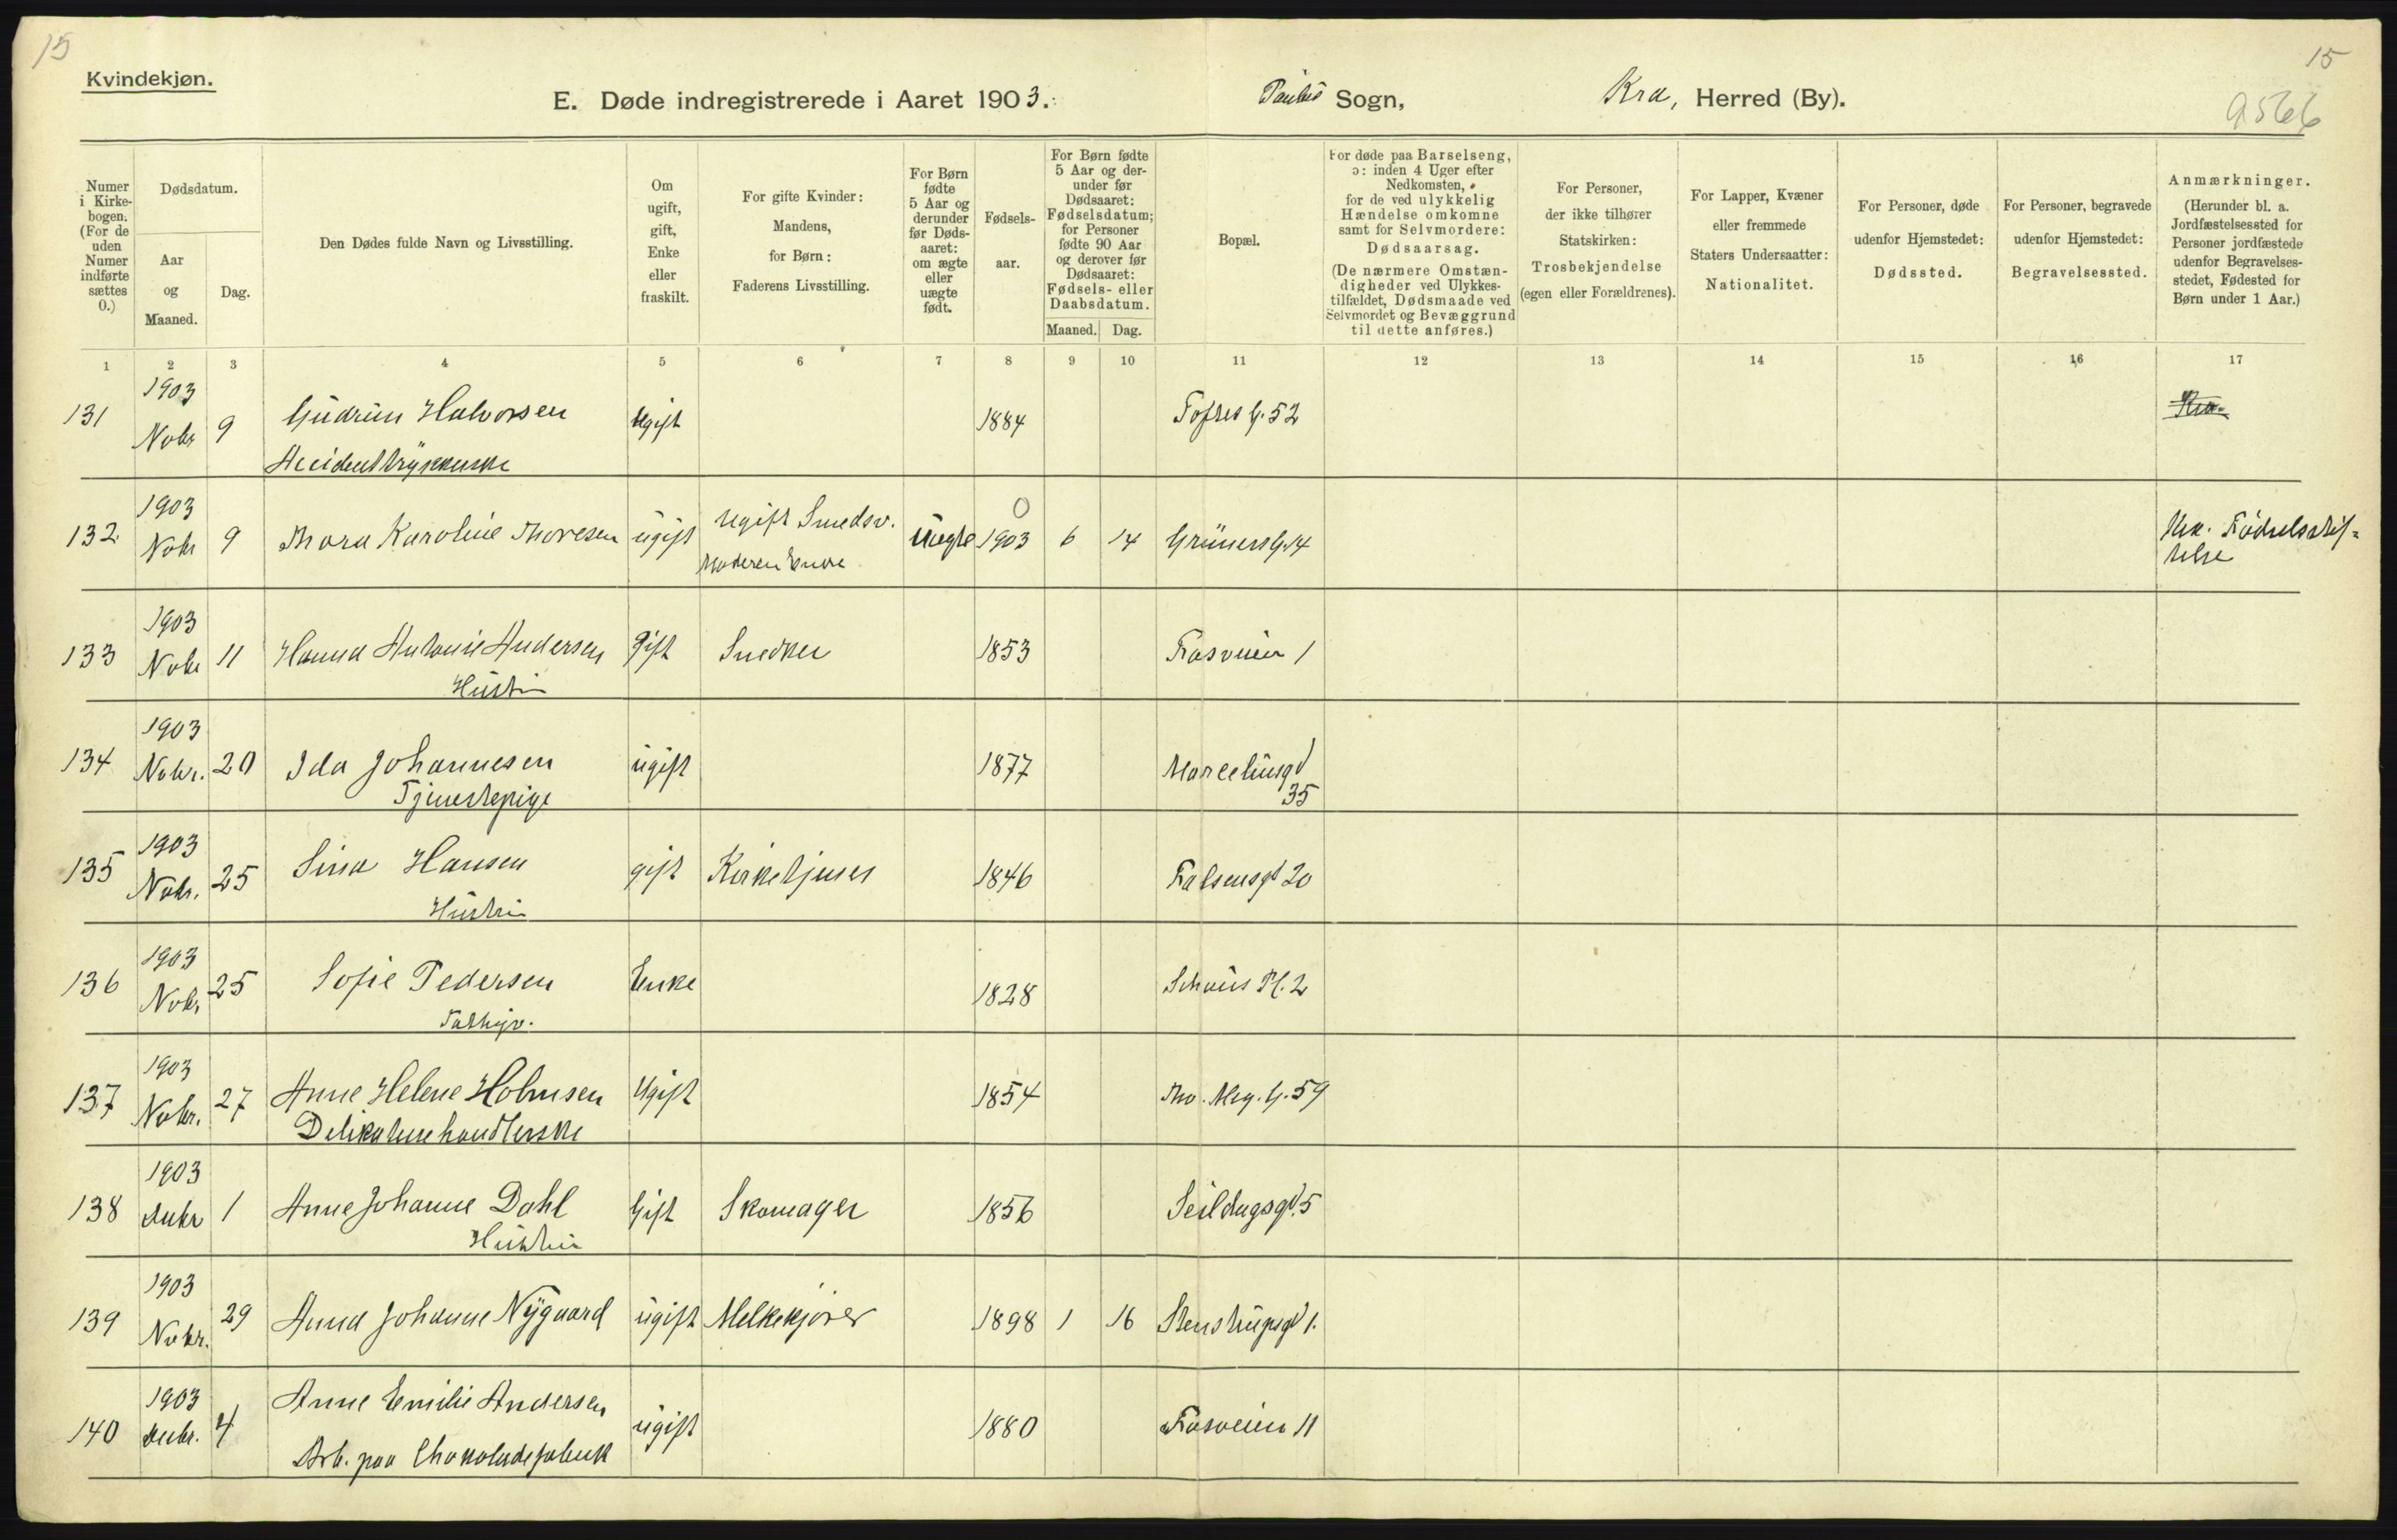 15
15
Kvindekjøn.
E. Døde indregistrerede i Aaret 1903. Paulus Sogn, Kra, Herred (By).
9566
Numer i Kirkebogen. (For de uden Numer indførte sættes 0.)
Dødsdatum.
Aar og Maaned.
Dag.
Den Dødes fulde Navn og Livsstilling.
Om ugift, gift, Enke eller fraskilt.
For gifte Kvinder: Mandens, for Børn: Faderens Livsstilling.
For Børn fødte 5 Aar og derunder før Dødsaaret: om ægte eller uægte født.
Fødselsaar.
For Børn fødte 5 Aar og derunder før Dødsaaret: Fødselsdatum; for Personer fødte 90 Aar og derover før Dødsaaret: Fødsels- eller Daabsdatum.
Maaned. Dag.
Bopæl.
For døde paa Barselseng, ɔ: inden 4 Uger efter Nedkomsten, for de ved ulykkelig Hændelse omkomne samt for Selvmordere: Dødsaarsag. (De nærmere Omstændigheder ved Ulykkestilfældet, Dødsmaade ved Selvmordet og Bevæggrund til dette anføres.)
For Personer, der ikke tilhører Statskirken: Trosbekjendelse (egen eller Forældrenes).
For Lapper, Kvæner eller fremmede Staters Undersaatter: Nationalitet.
For Personer, døde udenfor Hjemstedet: Dødssted.
For Personer, begravede udenfor Hjemstedet: Begravelsessted.
Anmærkninger. (Herunder bl. a. Jordfæstelsessted for Personer jordfæstede udenfor Begravelsesstedet, Fødested for Børn under 1 Aar.)
1 2 3 4 5 6 7 8 9 10 11 12 13 14 15 16 17
1903
131 Nobr 9 Gudrun Halvorsen Ugift 1884 Toftes G. 52 Kra.
Accidenttrykkerske
1903 0
132 Nobr 9 Thora Karoline Thoresen ugift Ugift Smedsv. Uægte 1903 6 14 Grüners G. 14 Kra. Fødselsstif-
Moderen Enke telse
1903
133 Nobr 11 Hanna Antonie Andersen gift Snedker 1853 Fosveien 1
Hustru
1903
134 Nobr. 20 Ida Johannesen ugift 1877 Marceliusgd
Tjenestepige 35
1903
135 Nobr. 25 Sina Hansen gift Kirketjener 1846 Falsensgd 20
Hustru
1903
136 Nobr 25 Sofie Pedersen Enke 1828 Schous Pl. 2
Fathyv.
1903
137 Nobr. 27 Anne Helene Holmsen Ugift 1854 Tho. Mey. G. 59
Delikatessehandlerske
1903
138 Debr 1 Anne Johanne Dahl Gift Skomager 1856 Seildugsgd. 5
Hustru
1903
139 Nobr. 29 Anna Johanne Nygaard ugift Melkekjører 1898 1 16 Stenstrupsgd 1.
1903
140 Debr. 4 Anne Emilie Andersen ugift 1880 Fosveien 11
Arb. paa Chokoladefabrik